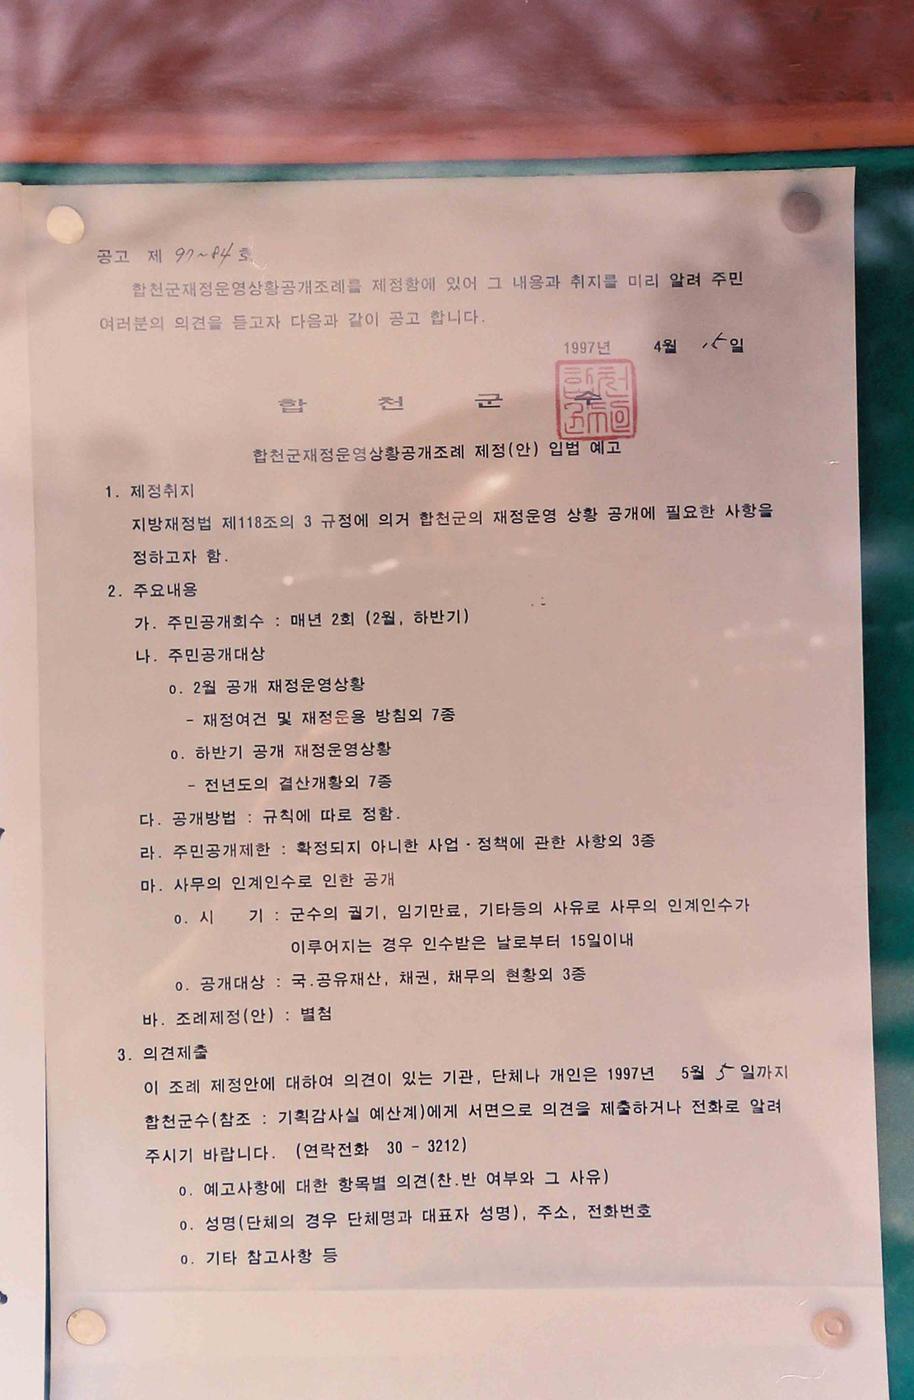 공고 제 97~84 호
합천군재정운영상황공개조례를 제정함에 있어 그 내용과 취지를 미리 알려 주민
여러분의 의견을 듣고자 다음과 같이 공고 합니다.
1997년 4월 15일
합 천 군 수
합천군재정운영상황공개조례 제정(안) 입법 예고
1. 제정취지
지방재정법 제118조의 3 규정에 의거 합천군의 재정운영 상황 공개에 필요한 사항을
정하고자 함.
2. 주요내용
가. 주민공개회수 : 매년 2회 (2월, 하반기)
나. 주민공개대상
o. 2월 공개 재정운영상황
- 재정여건 및 재정운용 방침외 7종
o. 하반기 공개 재정운영상황
- 전년도의 결산개황외 7종
다. 공개방법 : 규칙에 따로 정함.
라. 주민공개제한 : 확정되지 아니한 사업·정책에 관한 사항의 3종
마. 사무의 인계인수로 인한 공개
o. 시 기 : 군수의 궐기, 임기만료, 기타등의 사유로 사무의 인계인수가
이루어지는 경우 인수받은 날로부터 15일이내
o. 공개대상 : 국.공유재산, 채권, 채무의 현황외 3종
바. 조례제정(안) : 별첨
3. 의견제출
이 조례 제정안에 대하여 의견이 있는 기관, 단체나 개인은 1997년 5월 5 일까지
합천군수(참조 : 기획감사실 예산계)에게 서면으로 의견을 제출하거나 전화로 알려
주시기 바랍니다. (연락전화 30 - 3212)
o. 예고사항에 대한 항목별 의견(찬.반 여부와 그 사유)
o. 성명(단체의 경우 단체명과 대표자 성명), 주소, 전화번호
o. 기타 참고사항 등